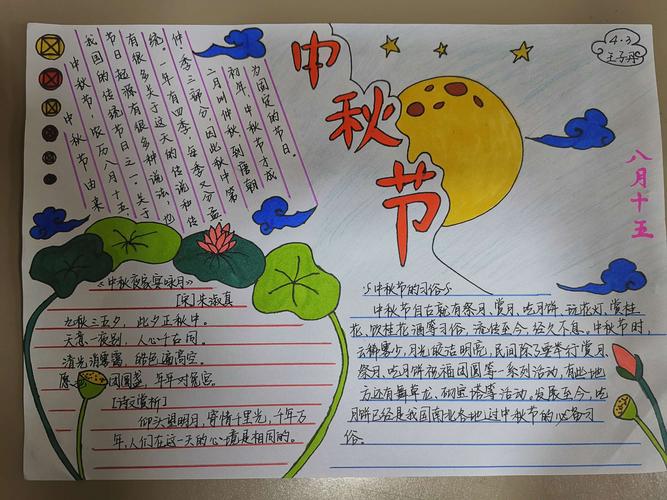 中秋节
4.3
八月十五
中秋节由来
中秋节，农历八月十五，
我国的传统节日之一。关于
节日起源有很多种说法，也
有很多关于这天的传说和传
统。一年有四季，每季又分孟
仲季三部分，因此秋中第
二月叫仲秋，到唐朝
初年，中秋节才成
为固定的节日。
《中秋夜家宴咏月》
[宋]朱淑真
九秋三五夕，此夕正秋中。
天意一夜别，人心千古同。
清光消雾霭，皓色遍高空。
愿 团圆盏，年年对 宫。
[诗文赏析]
仰头望明月，寄情千里光，千年万
年，人们在这一天的心境是相同的。
中秋节的习俗
中秋节自古就有祭月、赏月、吃月饼、玩花灯、赏桂
花、饮桂花酒等习俗，流传至今，经久不息。中秋节时，
云稀雾少，月光皎洁明亮，民间除了要举行赏月、
祭月、吃月饼祝福团圆等一系列活动，有些地
方还有舞草龙、砌宝塔等活动，发展至今，吃
月饼已经是我国南北各地过中秋节的必备习
俗。